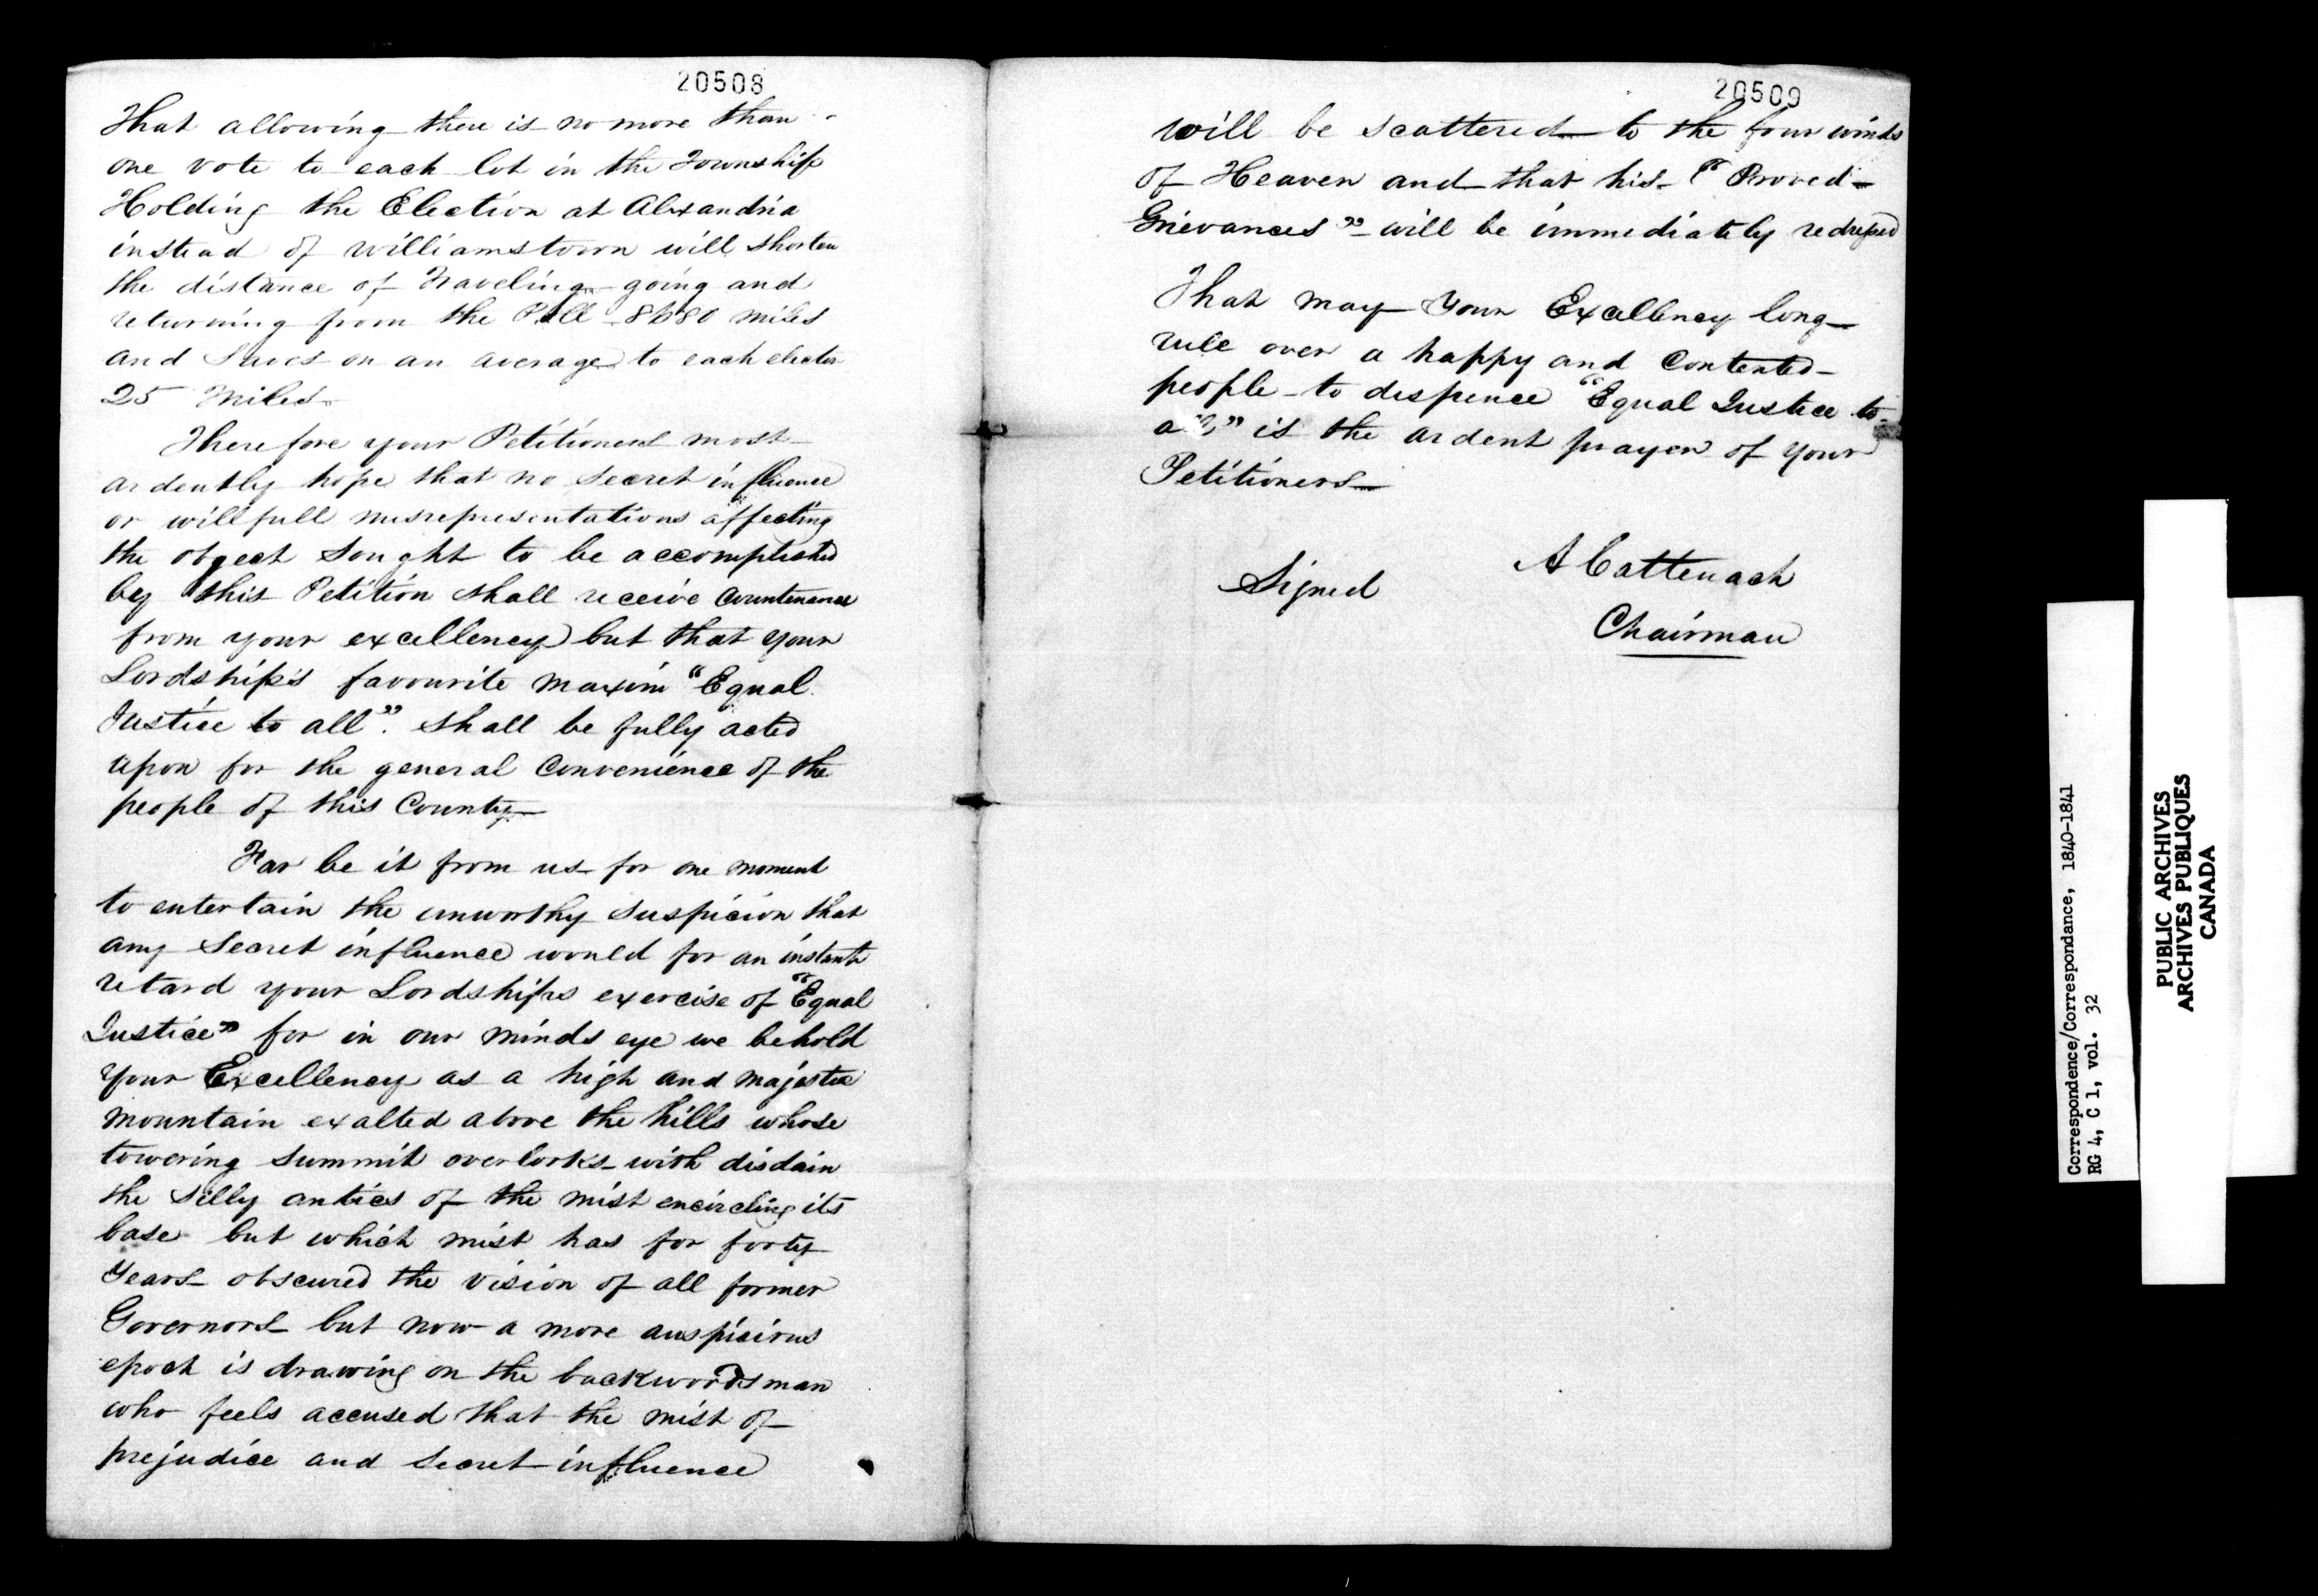 20508
That allowing there is no more than
one vote to each lot in the Township
Holding the Election at Alexandria
instead of Williamstown will shorten
the distance of Traveling going and
returning from the Poll miles
and Saves on an average to each elector
25 Miles
Therefore your Petitioners most
ardently hope that no secret influence
or willfull misrepresentations affecting
the object sought to be accomplished
by this Petition shall receive Countenance
from your excellency but that your
Lordship's favourite maxim "Equal
Justice to all". shall be fully acted
upon for the general Convenience of the
people of this County
Far be it from us for one moment
to entertain the unworthy suspicion that
any Secret influence would for an instant
retard your Lordships exercise of "Equal
Justice" for in our minds eye we behold
your Excellency as a high and majestic
mountain exalted above the hills whose
towering summit overlooks with disdain
the silly antics of the mist encircling its
base but which mist has for forty
Years obscured the vision of all former
Governors but now a more auspicious
epoch is drawing on the backwoodsman
who feels that the mist of
prejudice and secret influence
20509
will be scattered to the four winds
of Heaven and that his "Proved
Grievances" will be immediately redressed
That may Your Excellency long
rule over a happy and Contented
people to dispence "Equal Justice to
all" is the ardent prayer of your
Petitioners
Signed
A Cattenach
Chairman
Correspondence/Correspondance, 1840-1841
RG 4, C 1, vol. 32
PUBLIC ARCHIVES
ARCHIVES PUBLIQUES
CANADA